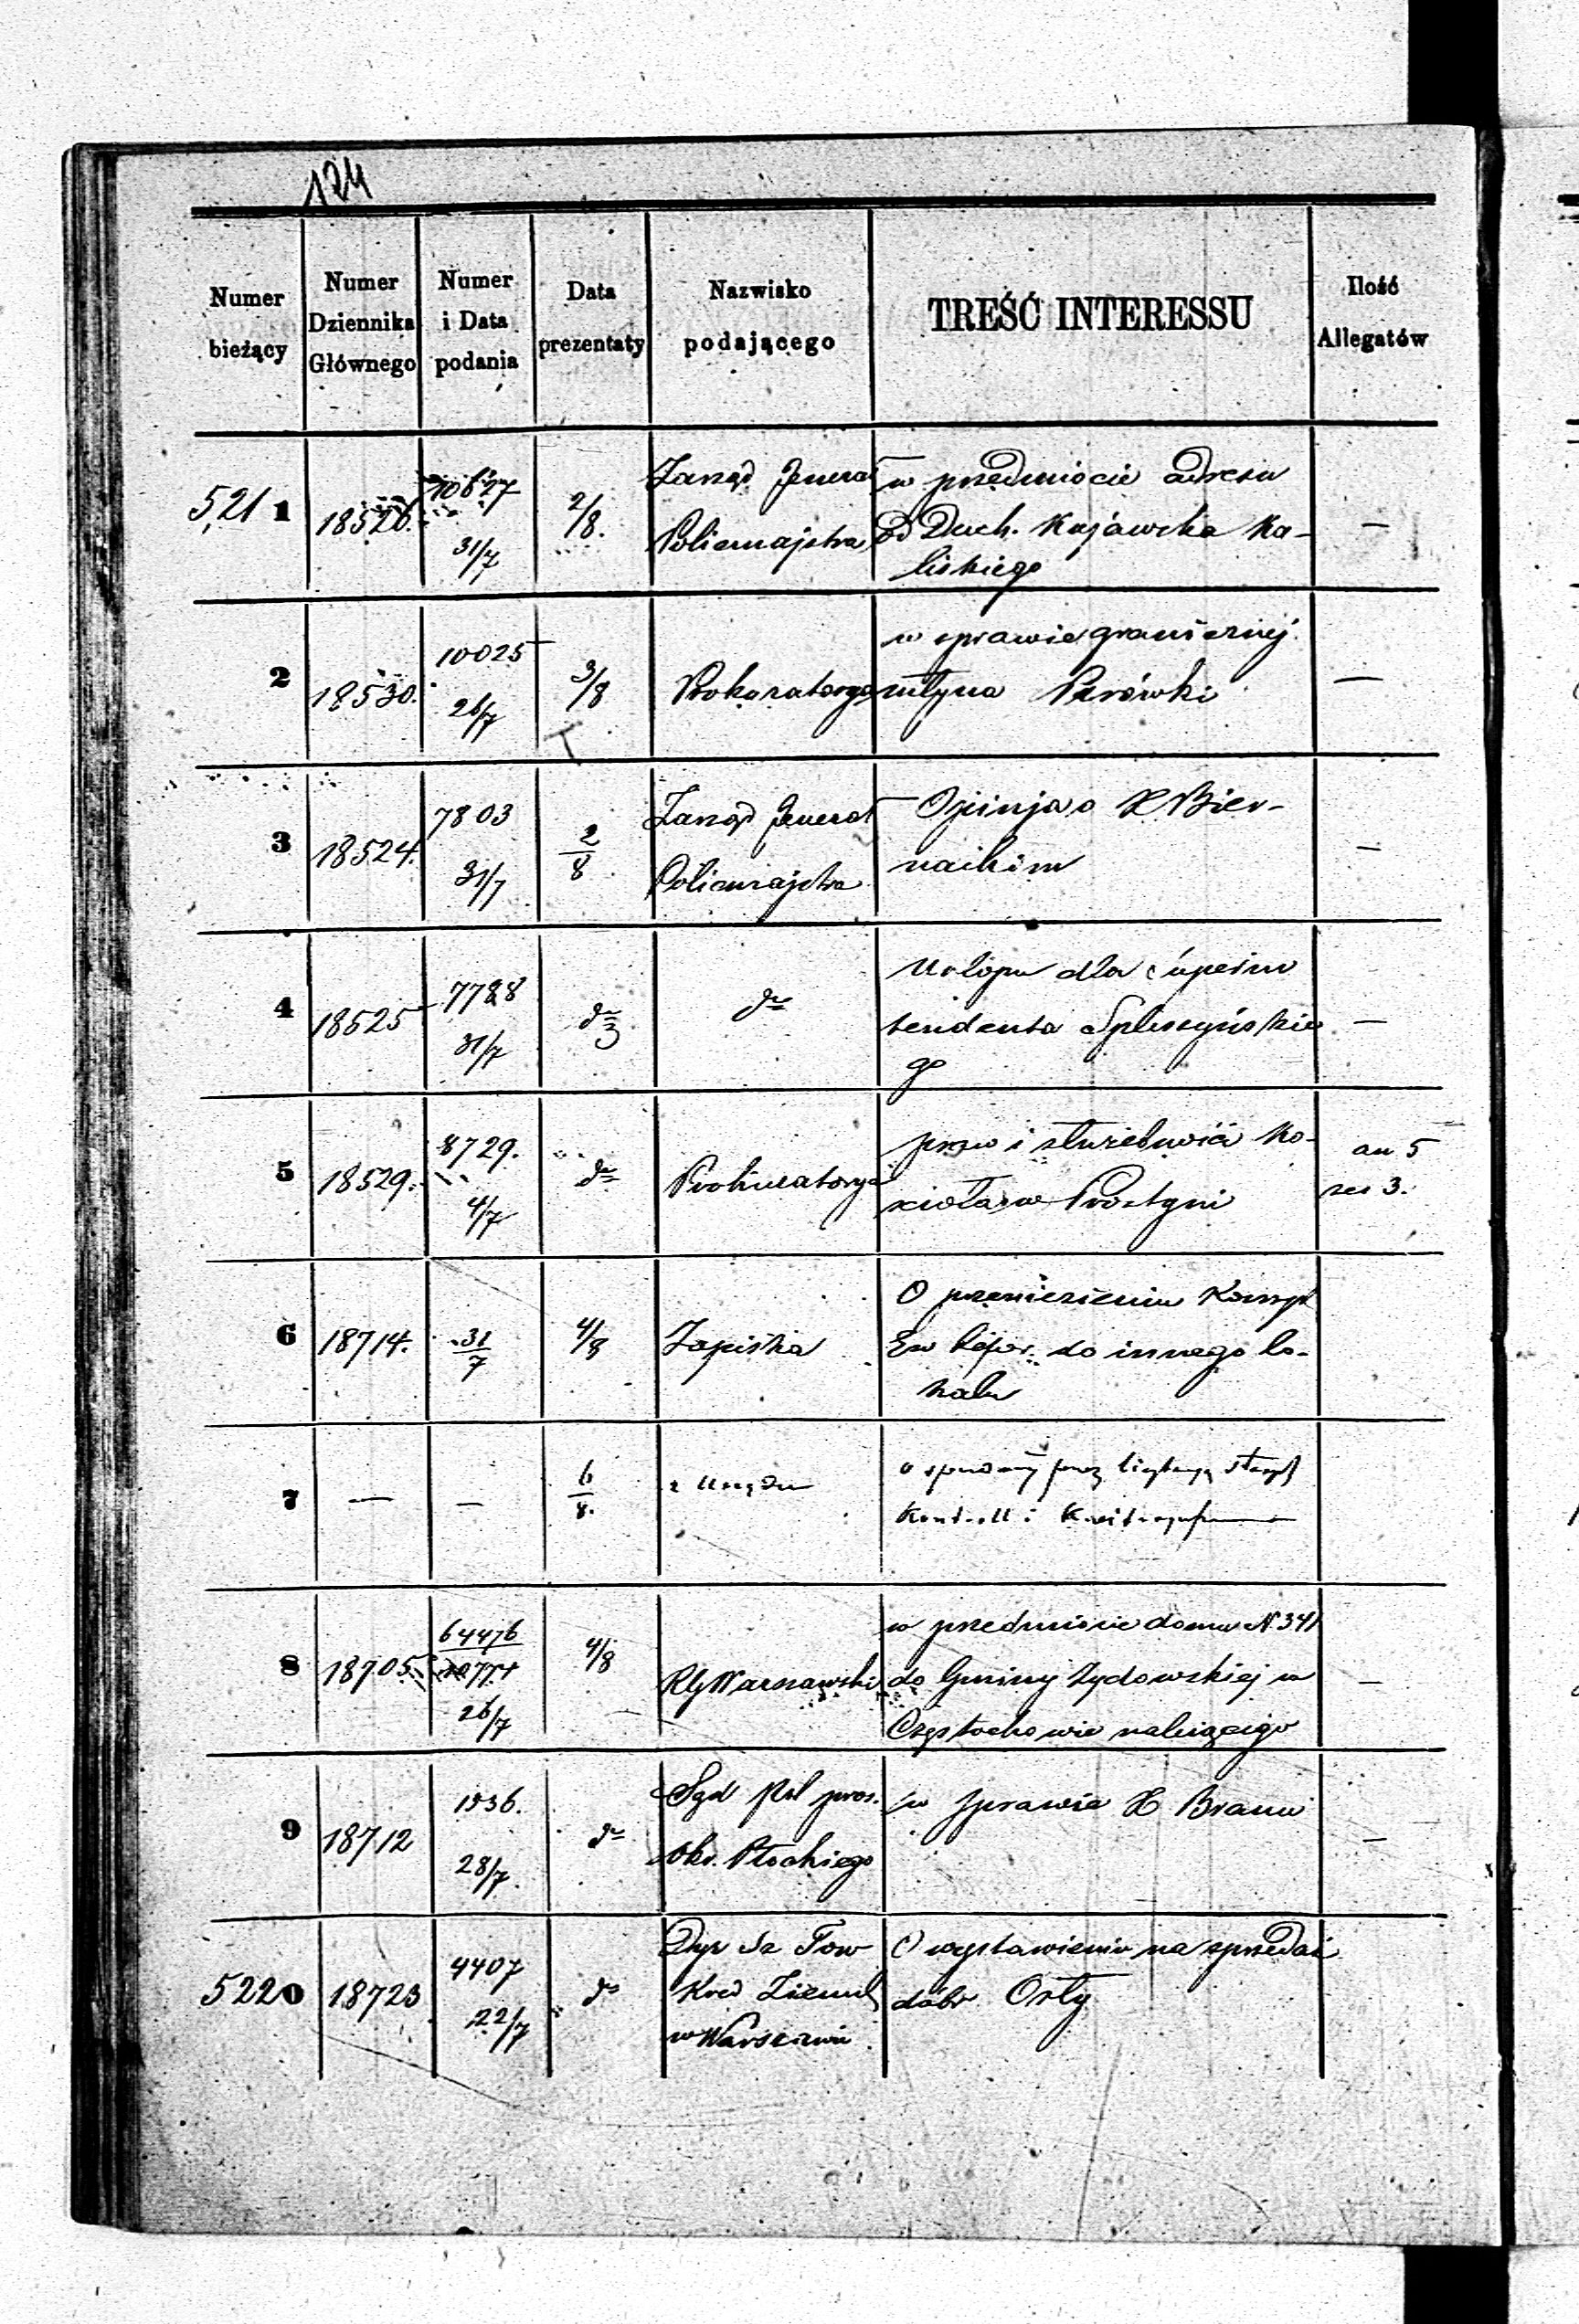 124
Numer bieżący
Numer Dziennika Głównego
Numer i Data podania
Data prezentaty
Nazwisko podającego
TREŚĆ INTERESSU
Ilość Allegatów
5,211 18526. 10627 31/7 2/8. Zarząd Jenerał Policmajstra w przedmiocie adresu
od Duch. Kujawsko Ka-
liskiego —
2 18530. 10025 26/7 3/8 Prokuratorya w sprawie granicznej
młyna Parówki —
3 18524. 7803 31/7 2/8 Zarząd Jenerał Policmajstra Opinja o X Bier-
nackim —
4 18525 7788 31/7 do do Urlopu dla Superin
tendenta go —
5 18529. 8729. 4/7 do Prokuratorya praw i służebności ko-
ścioła w Prostyni an 5
ses 3.
6 18714. 31/7 4/8 Zapiska O przeniesieniu
do innego lo-
kalu
7 — — 6/8. z Urzędu o sprzedaży przez licytacyą starych
Kontroll i
8 18705. 64476 26/7 4/8 RG Warszawski w przedmiocie domu N. 341
do Gminy Żydowskiej w
Częstochowie należącego —
9 18712 1536. 28/7. do Sąd Pol pros.
okr. Płockiego w sprawie X Braun —
5220 18723 4407 22/7 do Dyr Sz Tow
Kred Ziemsk
w Warszawie O wystawieniu na sprzedaż
dóbr Orły